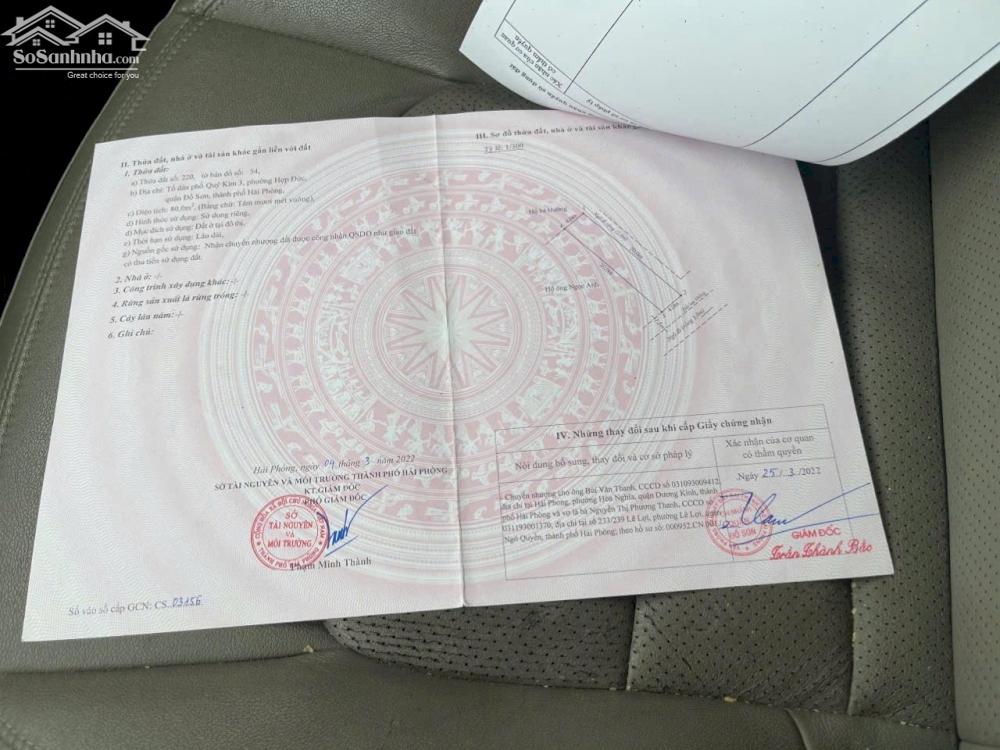 SoSanhnha.com
Great choice for you
Xác nhận của cơ quan
có thẩm quyền
II. Thửa đất, nhà ở và tài sản khác gắn liền với đất
1. Thửa đất:
a) Thửa đất số: 220, tờ bản đồ số: 54,
b) Địa chỉ: Tổ dân phố Quý Kim 3, phường Hợp Đức,
quận Đồ Sơn, thành phố Hải Phòng,
c) Diện tích: 80,0m², (Bằng chữ: Tám mươi mét vuông),
d) Hình thức sử dụng: Sử dụng riêng,
đ) Mục đích sử dụng: Đất ở tại đô thị,
e) Thời hạn sử dụng: Lâu dài,
g) Nguồn gốc sử dụng: Nhận chuyển nhượng đất được công nhận QSDĐ như giao đất
có thu tiền sử dụng đất.
2. Nhà ở: -/-
3. Công trình xây dựng khác: -/-
4. Rừng sản xuất là rừng trồng: -/-
5. Cây lâu năm: -/-
6. Ghi chú:
Hải Phòng, ngày 04 tháng 3 năm 2022
SỞ TÀI NGUYÊN VÀ MÔI TRƯỜNG THÀNH PHỐ HẢI PHÒNG
KT.GIÁM ĐỐC
PHÓ GIÁM ĐỐC
SỞ
TÀI NGUYÊN
VÀ
MÔI TRƯỜNG
Phạm Minh Thành
Số vào sổ cấp GCN: CS 03156
III. Sơ đồ thửa đất, nhà ở và tài sản khác gắn
Tỷ lệ: 1/300
Hộ bà Hường
Hộ ông Ngọc Anh
IV. Những thay đổi sau khi cấp Giấy chứng nhận
Nội dung bổ sung, thay đổi và cơ sở pháp lý
Xác nhận của cơ quan
có thẩm quyền
Chuyển nhượng cho ông Bùi Văn Thanh, CCCD số 031093009412,
địa chỉ tại Hải Phong, phường Hòa Nghĩa, quận Dương Kinh, thành
phố Hải Phòng và vợ là bà Nguyễn Thị Phương Thanh, CCCD số
031193001370, địa chỉ tại số 233/239 Lê Lợi, phường Lê Lợi, quận
Ngô Quyền, thành phố Hải Phòng; theo hồ sơ số: 000952.CN.001
Ngày 25/3/2022
ĐỒ SƠN
GIÁM ĐỐC
Trần Thành Bảo